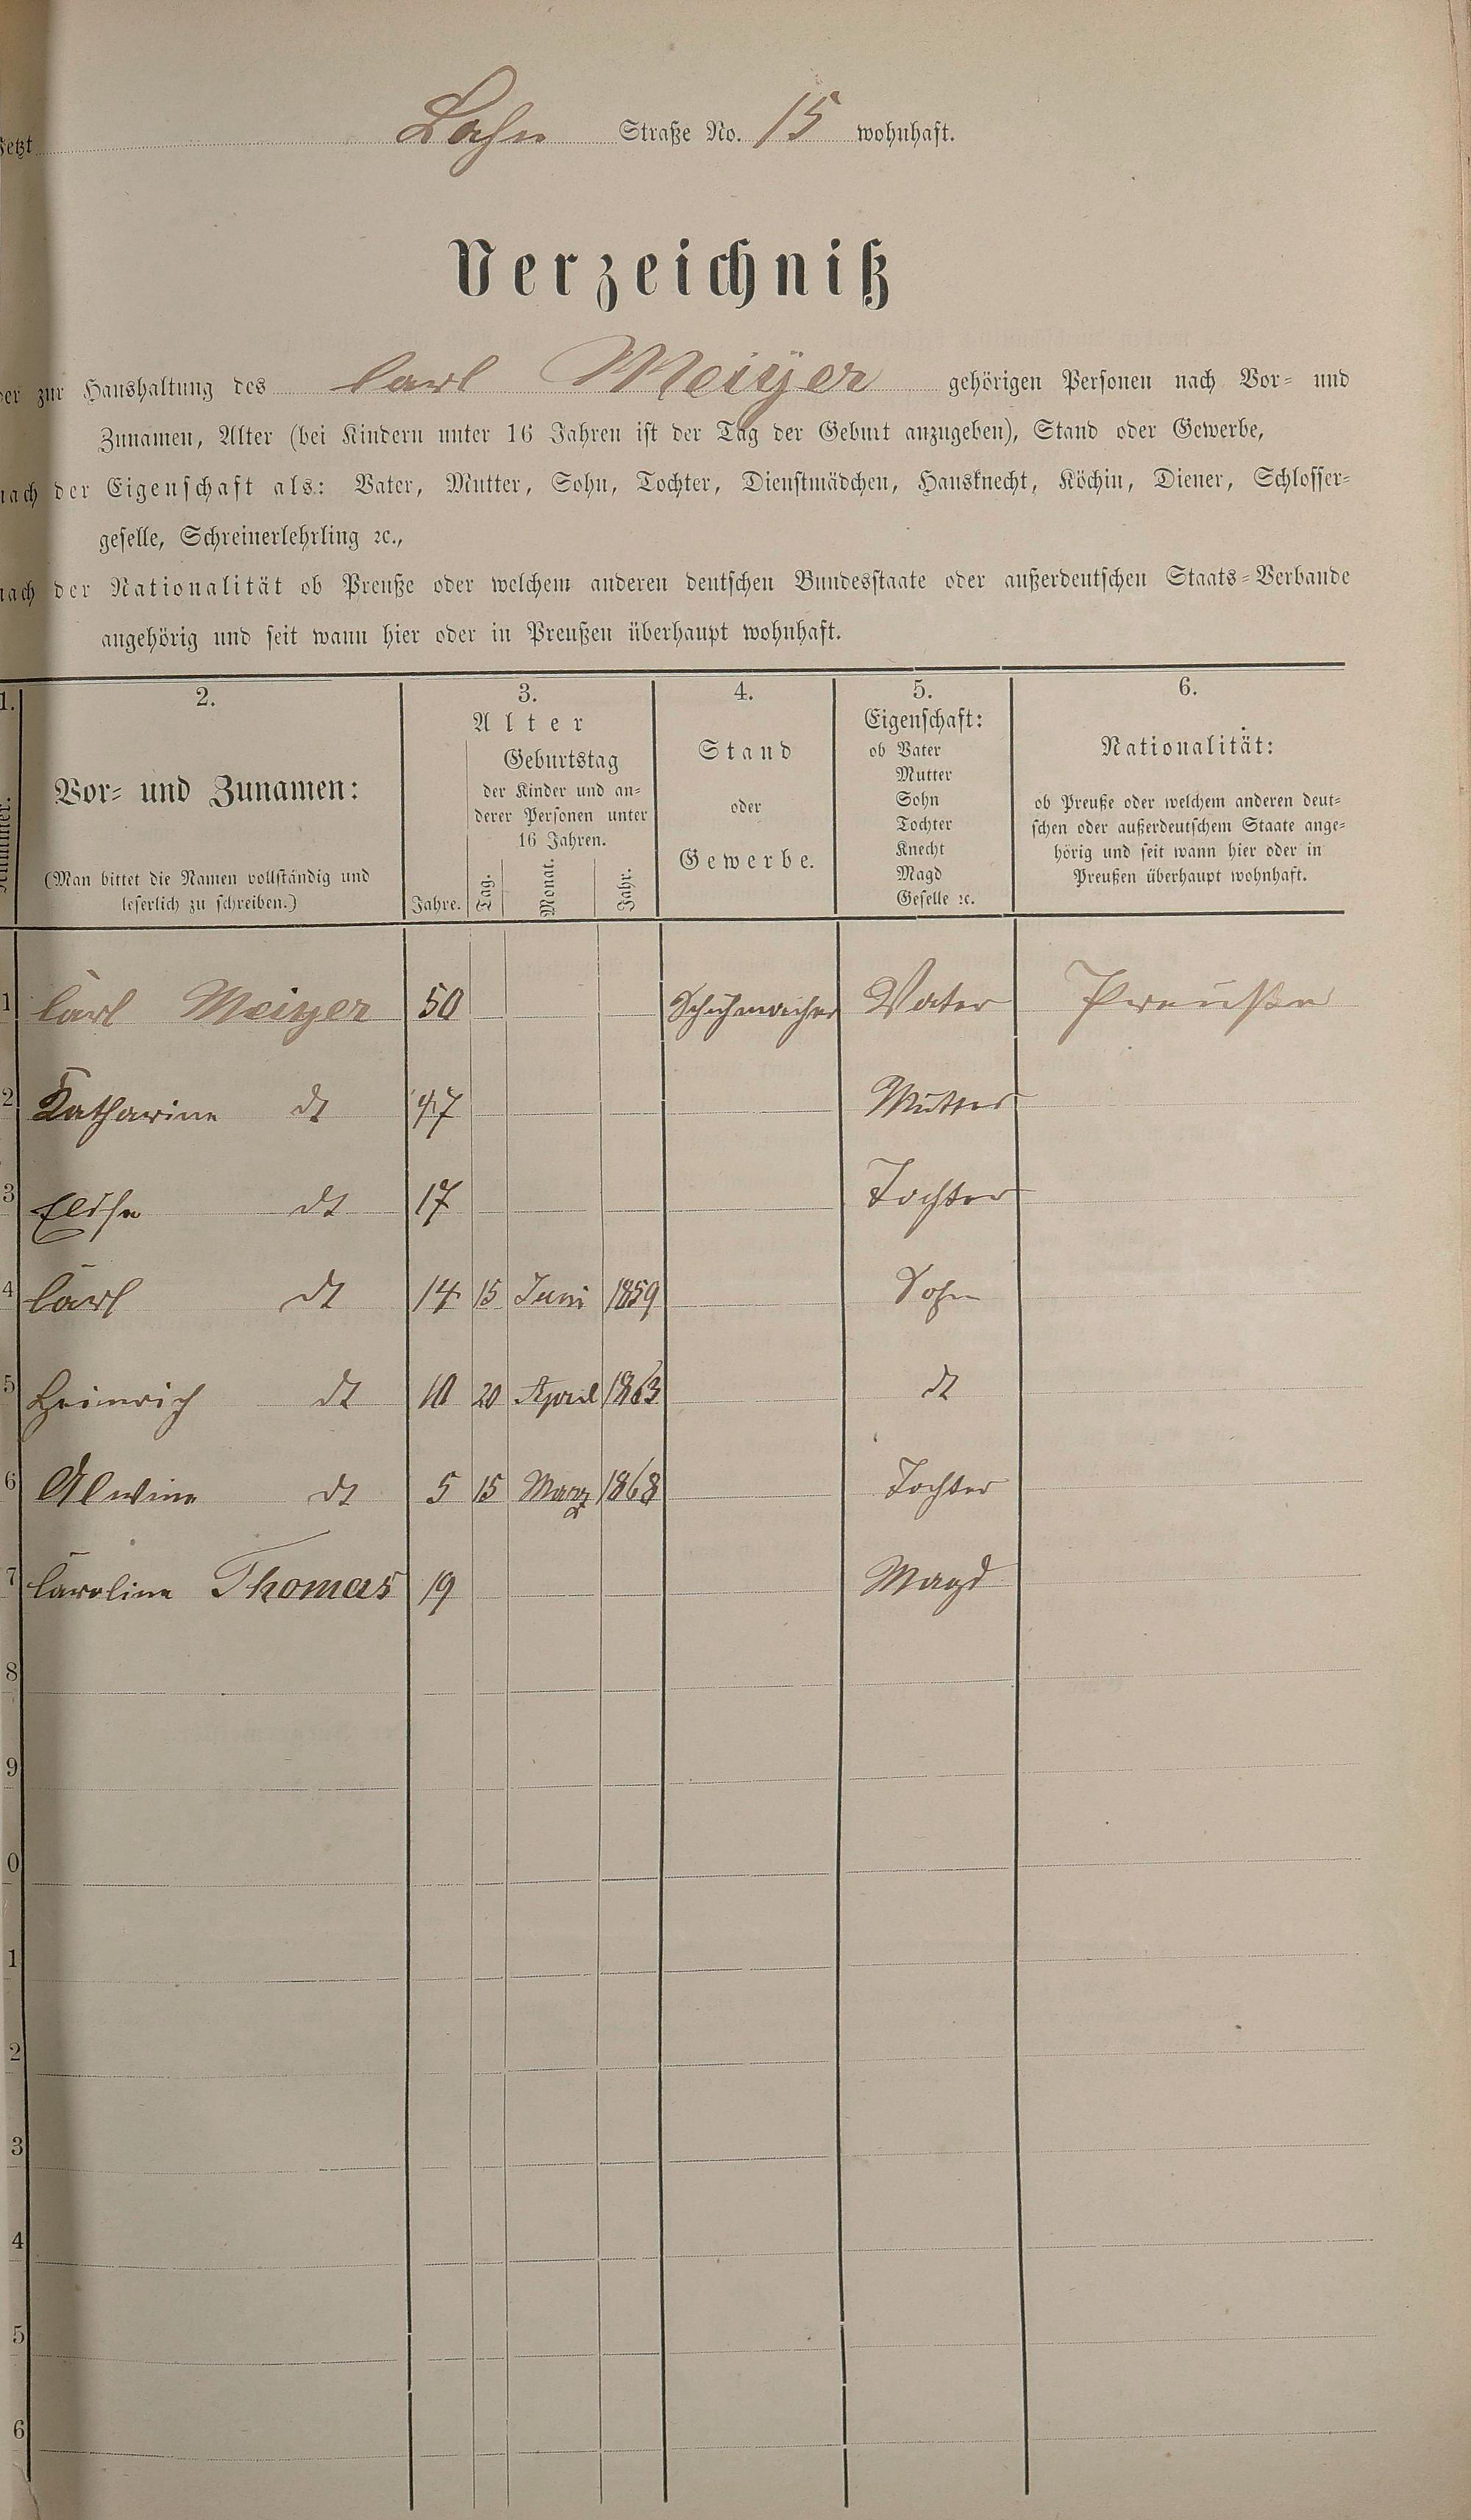 Jetzt Lahn Straße No. 15 wohnhaft.
Verzeichniß
der zur Haushaltung des Carl Meiyer gehörigen Personen nach Vor- und
Zunamen, Alter (bei Kindern unter 16 Jahren ist der Tag der Geburt anzugeben), Stand oder Gewerbe,
nach der Eigenschaft als: Vater, Mutter, Sohn, Tochter, Dienstmädchen, Hausknecht, Köchin, Diener, Schlosser-
geselle, Schreinerlehrling ꝛc.,
nach der Nationalität ob Preuße oder welchem anderen deutschen Bundesstaate oder außerdeutschen Staats-Verbande
angehörig und seit wann hier oder in Preußen überhaupt wohnhaft.
1. 2. 3. 4. 5. 6.
Nummer.
Vor- und Zunamen:
(Man bittet die Namen vollständig und
leserlich zu schreiben.)
Alter
Jahre.
Geburtstag
der Kinder und an-
derer Personen unter
16 Jahren.
Tag. Monat. Jahr.
Stand
oder
Gewerbe.
Eigenschaft:
ob Vater
Mutter
Sohn
Tochter
Knecht
Magd
Geselle ꝛc.
Nationalität:
ob Preuße oder welchem anderen deut-
schen oder außerdeutschem Staate ange-
hörig und seit wann hier oder in
Preußen überhaupt wohnhaft.
1 Carl Meiyer 50 Schuhmacher Vater Preuße
2 Katharine dt 47 Mutter
3 Elise dt 17 Tochter
4 Carl dt 14 15 Juni 1859 Sohn
5 Heinrich dt 10 20 April 1863 dt
6 Alwine dt 5 15 Marz 1868 Tochter
7 Caroline Thomas 19 Magd
8
9
0
1
2
3
4
5
6